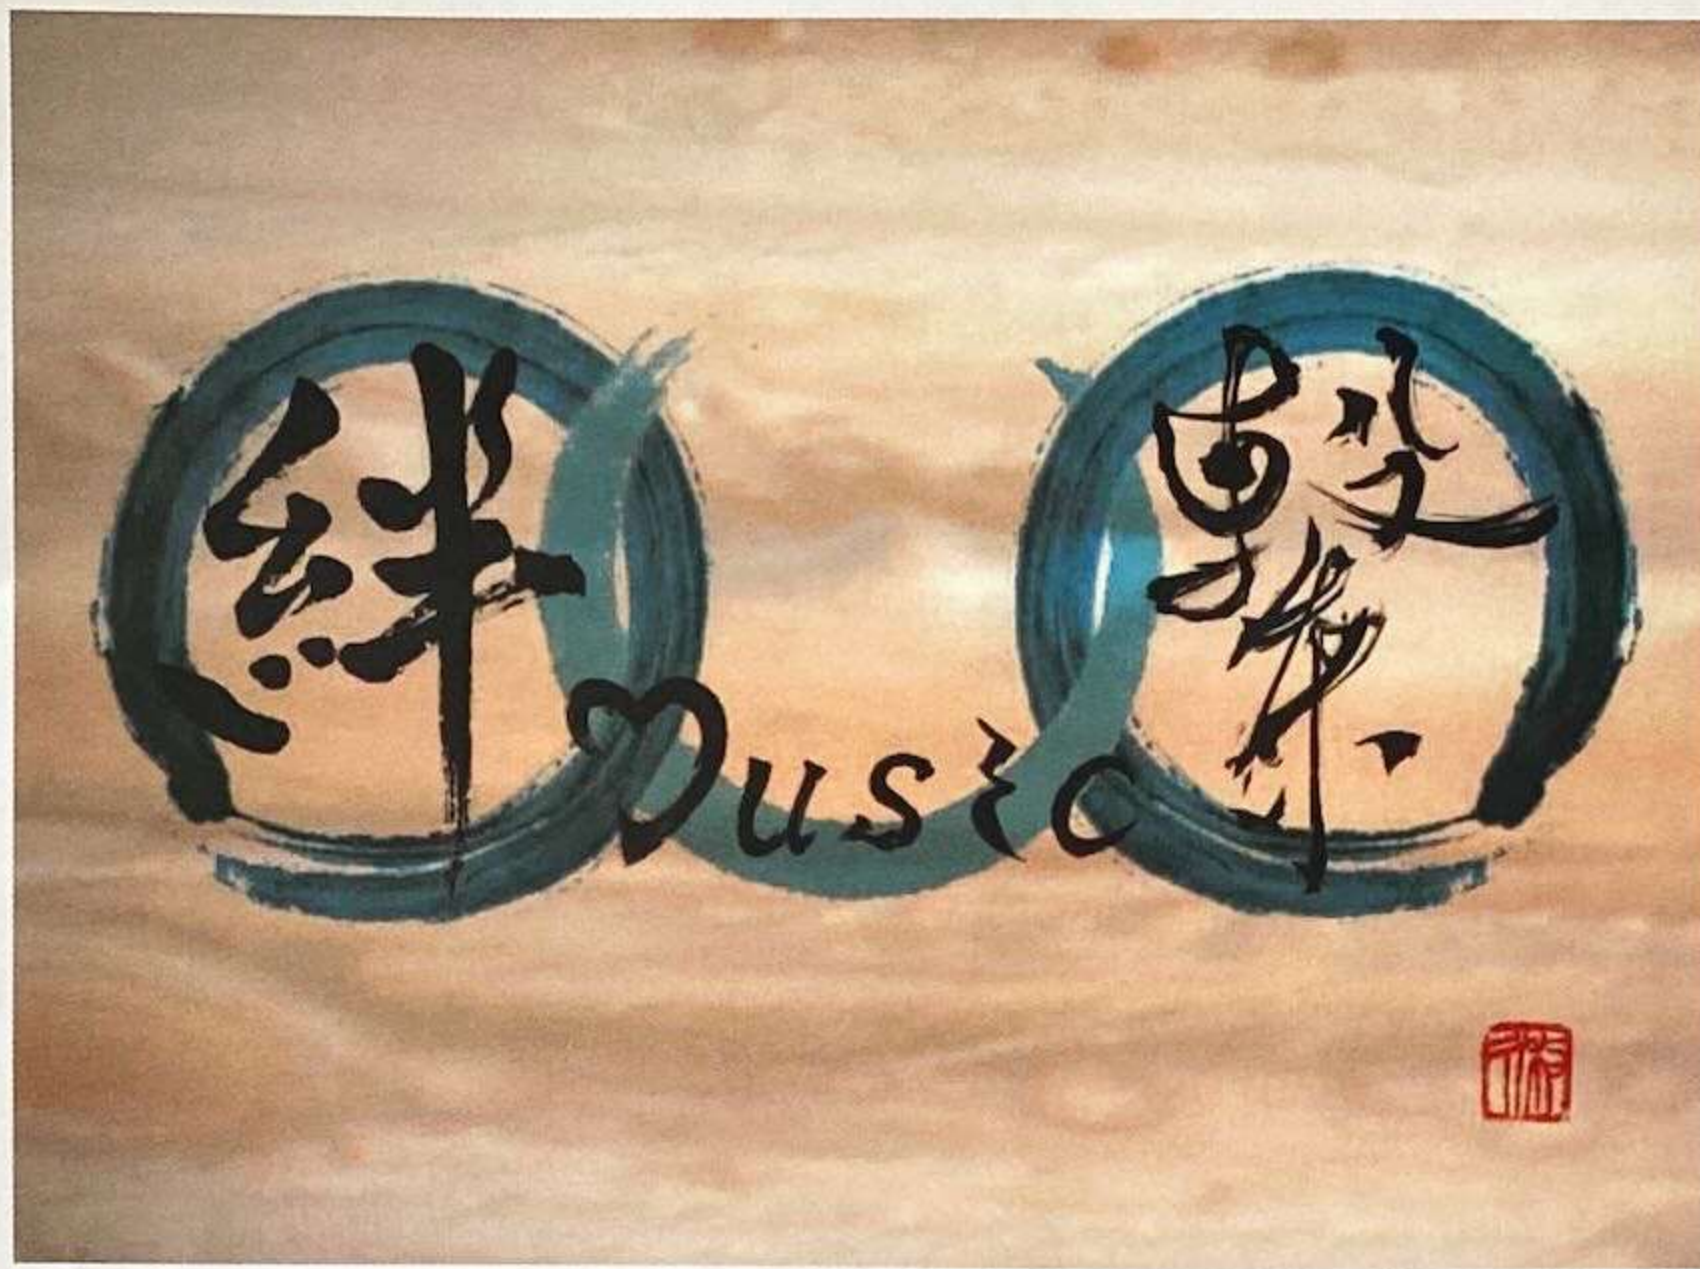 絆 music 繋